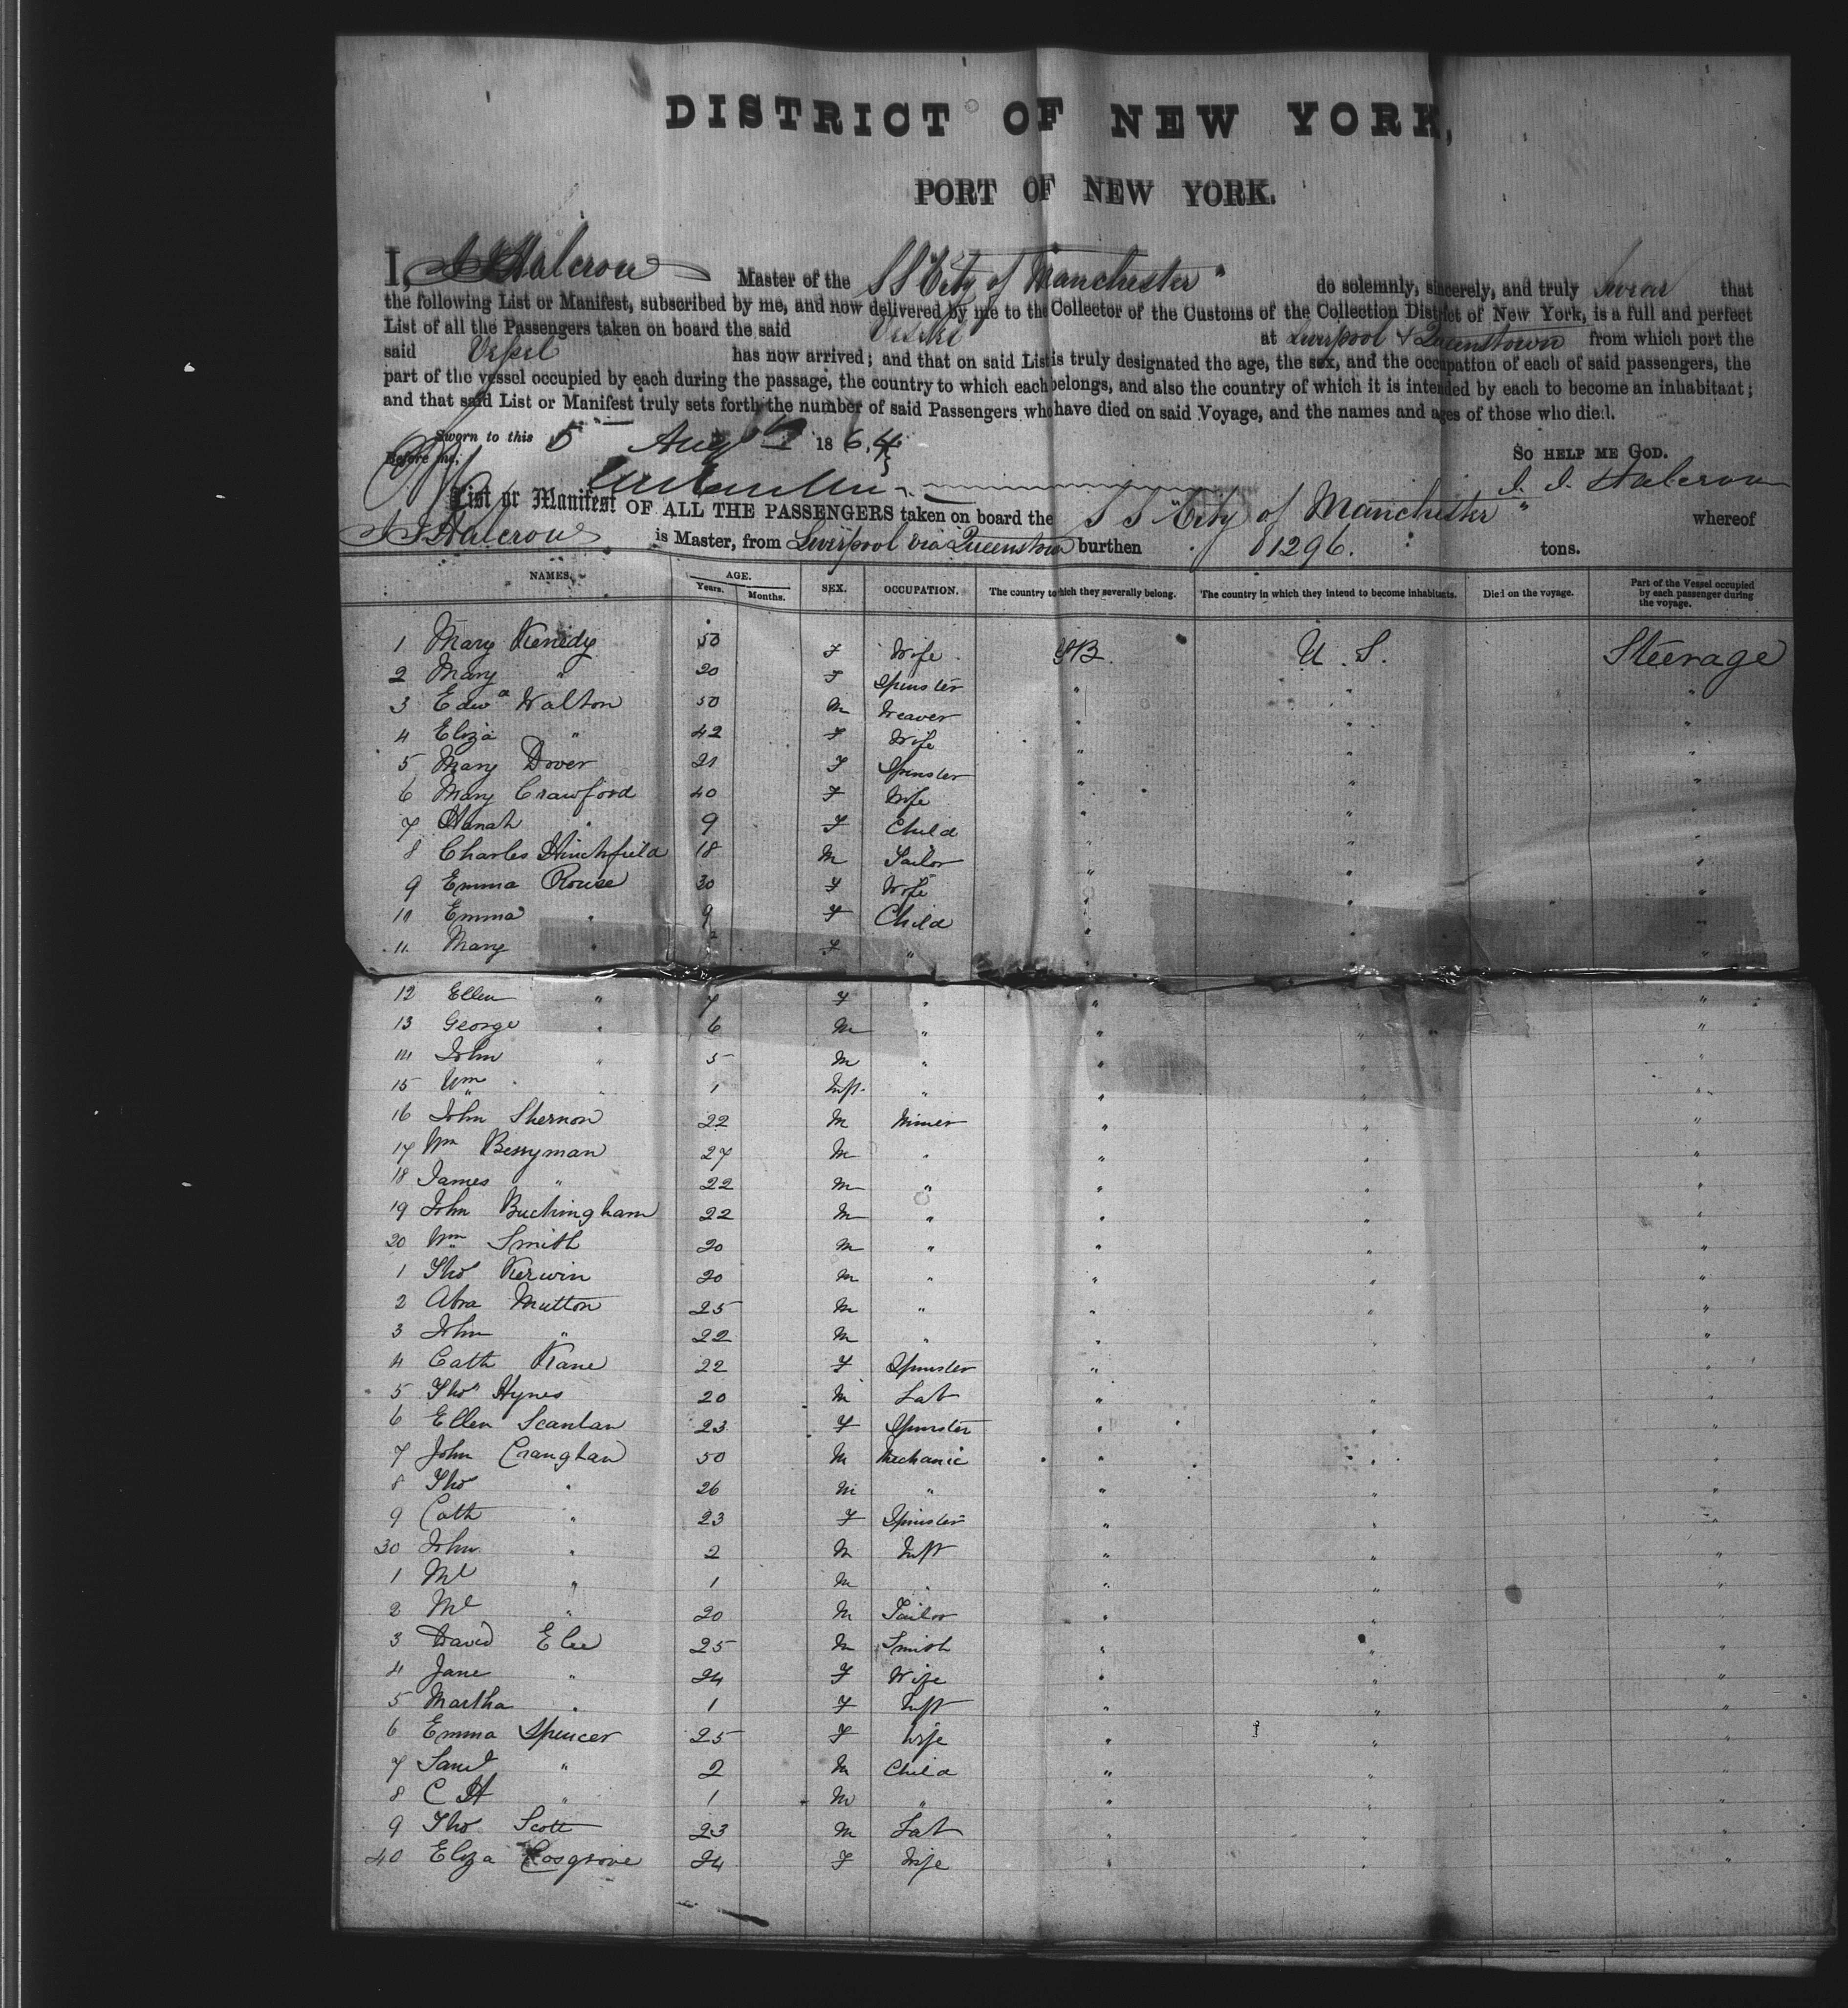 DISTRICT OF NEW YORK,
PORT OF NEW YORK.
I, J J Halcrow Master of the SS "City of Manchester" do solemnly, sincerely, and truly swear that
the following List or Manifest, subscribed by me, and now delivered by me to the Collector of the Customs of the Collection District of New York, is a full and perfect
List of all the Passengers taken on board the said Vessel at Liverpool & Queenstown from which port the
said Vessel has now arrived; and that on said List is truly designated the age, the sex, and the occupation of each of said passengers, the
part of the vessel occupied by each during the passage, the country to which each belongs, and also the country of which it is intended by each to become an inhabitant;
and that said List or Manifest truly sets forth the number of said Passengers who have died on said Voyage, and the names and ages of those who died.
Sworn to this 5 Augst 1864 So HELP ME GOD.
Before me, J. J. Halcrow
List or Manifest OF ALL THE PASSENGERS taken on board the SS "City of Manchester" whereof
J J Halcrow is Master, from Liverpool via Queenstown burthen 1296. tons.
NAMES. AGE. Years. Months. SEX. OCCUPATION. The country to which they severally belong. The country in which they intend to become inhabitants. Died on the voyage. Part of the Vessel occupied by each passenger during the voyage.
1 Mary Kenedy 50 F Wife GB. U.S. Steerage
2 Mary " 20 F Spinster " " "
3 Edwd Walton 50 M Weaver " " "
4 Eliza " 42 F Wife " " "
5 Mary Dover 21 F Spinster " " "
6 Mary Crawford 40 F Wife " " "
7 Hanah " 9 F Child " " "
8 Charles Hinchfield 18 M Tailor " " "
9 Emma Rouse 30 F Wife " " "
10 Emma " 9 F Child " " "
11 Mary " F " " " "
12 Ellen " 7 F " " "
13 George " 6 M " " " "
14 John " 5 M " " " "
15 Wm " 1 Inft. " " " "
16 John Shernon 22 M Miner " " "
17 Wm Berryman 27 M " " " "
18 James " 22 M " " " "
19 John Buckingham 22 M " " " "
20 Wm Smith 20 M " " " "
1 Thos Kerwin 20 M " " " "
2 Abra Mutton 25 M " " " "
3 John " 22 M " " " "
4 Cath Kane 22 F Spinster " " "
5 Thos Hynes 20 M Lab " " "
6 Ellen Scanlan 23 F Spinster " " "
7 John Craughan 50 M Mechanic " " "
8 Tho " 26 M " " " "
9 Cath " 23 F Spinster " " "
30 John " 2 M Inft " " "
1 Ml " 1 M " " " "
2 Ml " 20 M Tailor " " "
3 David Elee 25 M Smith " " "
4 Jane " 24 F Wife " " "
5 Martha " 1 F Inft " " "
6 Emma Spencer 25 F Wife " " "
7 Saml " 2 M Child " " "
8 C H " 1 M " " " "
9 Tho Scott 23 M Lab " " "
40 Eliza Cosgrove 24 F Wife " " "